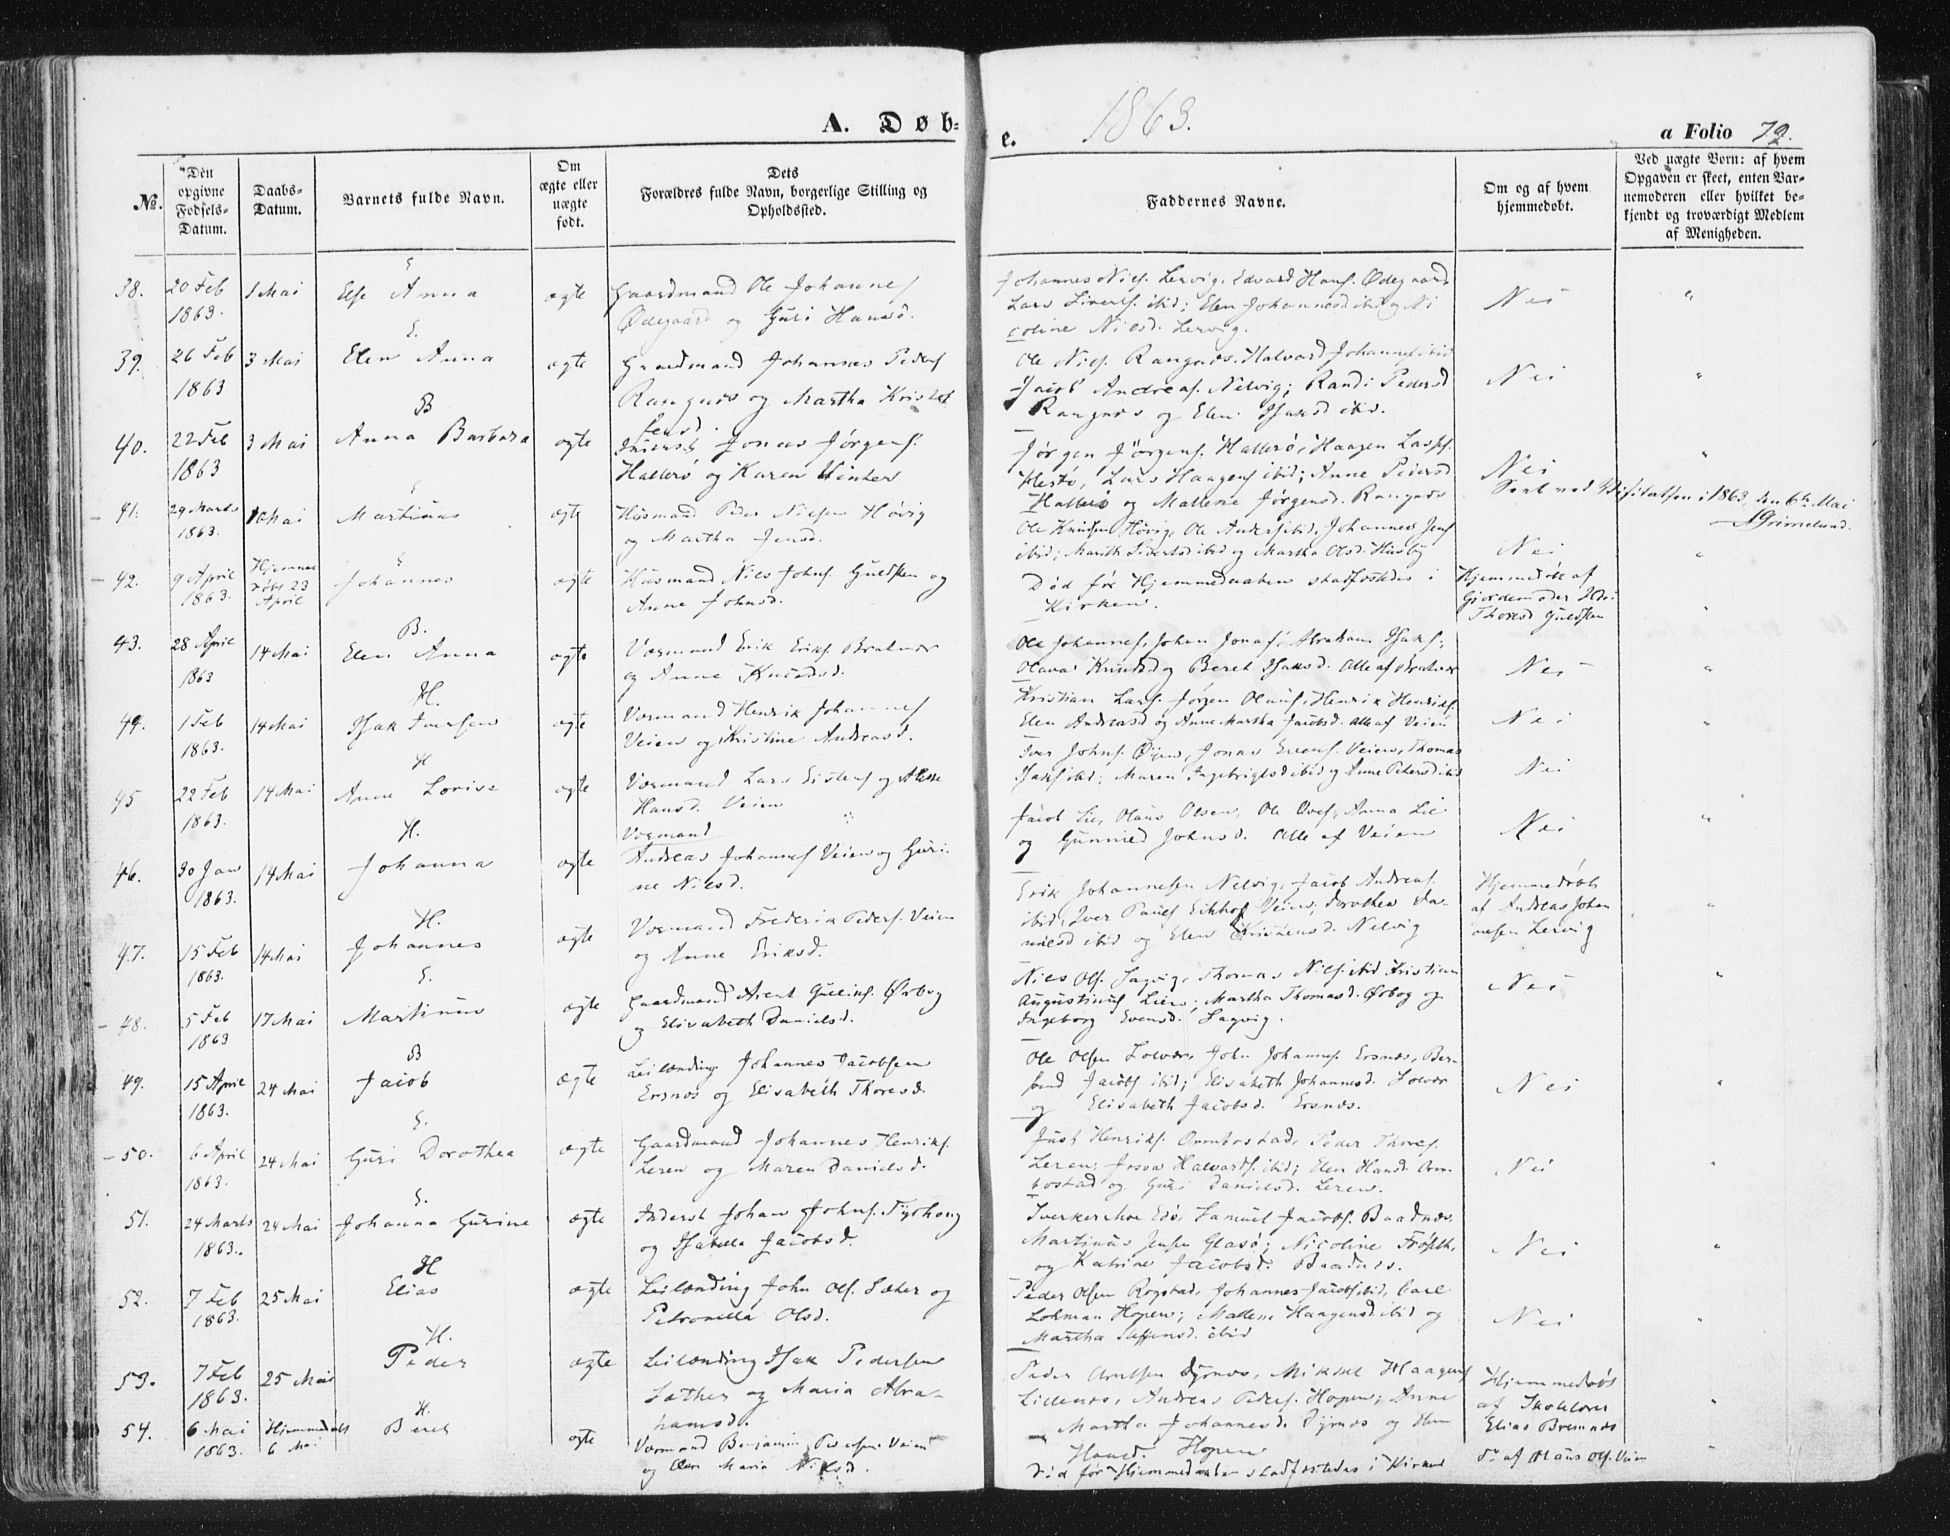 A. Døb=
e.
1863.
a Folio 72.
No.
Den opgivne Fødsels-Datum.
Daabs-Datum.
Barnets fulde Navn.
Om ægte eller uægte født.
Dets Forældres fulde Navn, borgerlige Stilling og Opholdssted.
Faddernes Navne.
Om og af hvem hjemmedøbt.
Ved uægte Børn: af hvem Opgaven er skeet, enten Barnemoderen eller hvilket bekjendt og troværdigt Medlem af Menigheden.
38. 20 Feb 1863. 1 Mai
E
Else Anna ægte
Gaardmand Ole Johannes
Ødegaard og Guri Hansd.
Johannes Niels. Lervig, Edvard Hans. Ødegaard
Lars Siverts. ibid; Elen Johannesd ibid og Ni
coline Nilsd. Lervig.
Nei "
39. 26 Feb 1863 3 Mai
E.
Elen Anna ægte
Gaardmand Johannes Peders
Rangnes og Martha Kristof
fersd.
Ole Niels. Rangnæs, Halvard Johannes ibid
Jacob Andreas. Nelvig; Randi Pedersd
Rangnæs og Elen Isaksd ibid.
Nei "
40. 22 Feb 1863 3 Mai
B
Anna Barbara ægte
Inderst Jonas Jørgens.
Hallerö og Karen Winter
Jørgen Jörgens. Hallerø, Haagen Lars.
Hestø, Lars Haagens ibid; Anne Pedersd
Hallerö og Mallene Jørgensd. Rangnæs
Nei "
Seet ved Visitatsen i 1863, den 6te Mai
Grimelund.
41. 29 Marts 1863. 10 Mai
E
Martinus ægte
Husmand Peder Nielsen Høvig
og Martha Jensd.
Ole Knudsen Høvig, Ole Anders ibid, Johannes Jens
ibid; Marith Sivertsd ibid og Martha Olsd. Husby
Nei "
42. 9 April 1863. Hjemme døbt 23 April
E
Johannes ægte
Husmand Niels Johns. Guldsten og
Anne Johnsd.
Død før Hjemmedaaben stadfæstedes i
Kirken.
Hjemmedøbt af
Gjordemoder
Thoresd Guldsten "
43. 28 April 1863 14 Mai
B.
Elen Anna ægte
Værmand Erik Eriks. Bratvær
og Anne Knudsd.
Ole Johannes, Johan Jonas, Abraham Isaks,
Olava Knudsd og Beret Isaksd. Alle af Bratvær
Nei "
44. 1 Feb 1863. 14 Mai
H.
Isak Iversen ægte
Værmand Henrik Johannes
Veien og Kristine Andreasd.
Kristian Lars. Jørgen Olaus, Henrik Henriks.
Elen Andreasd og Anne Martha Jacobsd. Alle af Veien
Nei "
45 22 Feb 1863. 14 Mai
H
Anne Lovise ægte
Værmand Lars Eistens og
Hansd. Veien
Iver Johns. Øien, Jonas Evens. Veien, Thomas
Isaks ibid; Maren Ingebrigtsd ibid og Anne Petersd ibid
Nei "
46. 30 Jan 1863. 14 Mai
H.
Johanna ægte
Værmand
Andreas Johannes Veien og Guri-
ne Nilsd.
Jacob Lie, Olaus Olsen, Ole Oves, Anna Lie
og Gunnild Johnsd. Alle af Veien
Nei "
47. 15 Feb 1863. 14 Mai
H.
Johannes ægte
Værmand Frederik Peders. Veien
og Anne Eriksd.
Erik Johannesen Nelvig, Jacob Andreas.
ibid, Iver Pauls Eikhof Veien, Dorothea Da-
nielsd ibid og Elen Kristensd. Nelvig
Hjemmedøbt
af Andreas Johan
nesen Lervig "
48. 5 Feb 1863 17 Mai
E.
Martinus ægte
Gaardmand Arent Gullins. Ørbog
og Elisabeth Danielsd.
Niels Ols. Sagvig, Thomas Niels. ibid Kristian
Augustinus Lien; Martha Thomasd. Ørbog og
Ingeborg Evensd. Sagvig.
Nei "
49. 15 April 1863. 24 Mai
B
Jacob ægte
Leilænding Johannes Jacobsen
Ersnæs og Elisabeth Thoresd.
Ole Olsen Solvær, John Johannes. Ersnæs, Ber-
Jacobs ibid; Elisabeth Johannesd. Solvær
og Elisabeth Jacobsd. Ersnæs.
Nei "
50. 6 April 1863. 24 Mai
E.
Guri Dorothea ægte
Gaardmand Johannes Henriks.
Leren og Maren Danielsd.
Just Henriks. Ormbostad, Peder Thores.
Leren, Josva Halvards. ibid; Elen Hansd. Orm-
bostad og Guri Danielsd. Leren.
Nei "
51. 24 Marts 1863. 24 Mai
E.
Johanna Gurine ægte
Inderst Johan Johns. Fjøhoug
og Isabella Jacobsd.
Iver Edø, Samuel Jacobs. Baadnæs.
Martinus Jensen Glasø; Nicoline Frøseth,
og Katrine Jacobsd. Baadnæs.
Nei "
52. 7 Feb 1863. 25 Mai
H
Elias ægte
Leilænding John Ols. Sæter og
Petronilla Olsd.
Peder Olsen Rogstad, Johannes Jacobs ibid, Carl
Lohman Hopen; Mallene Haagensd ibid og
Martha Steffensd. ibid
Nei "
53. 7 Feb 1863. 25 Mai
H.
Peder ægte
Leilænding Isak Pedersen
Sæther og Maria Abra-
hamsd.
Peder Arntsen Dyrnæs, Mikkel Haagens
Lillenæs, Andreas Peders. Hopen; Anne
Martha Johannesd. Dyrnæs og Elen
Hansd. Hopen
Hjemmedøbt
af Skolelærer
Elias Bremnæs "
54. 6 Mai 1863. Hjemmedøbt 6 Mai
H.
Beret ægte
Værmand Benjamin Pedersen Veien
og Elen Maria Nilsd.
Død før Hjemmedaaben stadfæstedes i Kirken
do af Olaus Ols. Veien "